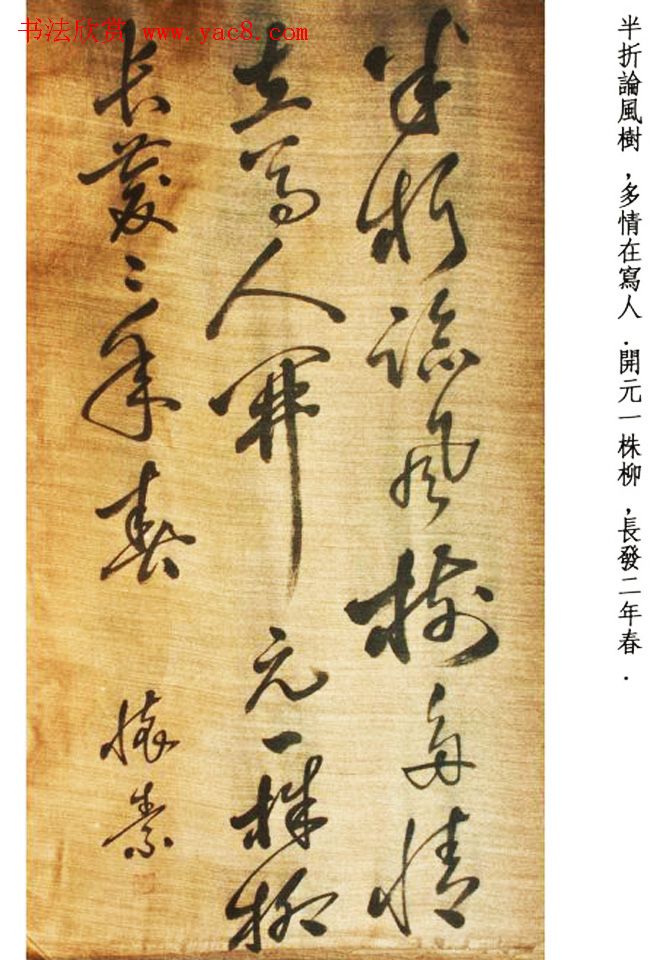 书法欣赏 www.yac8.com
半折論風樹，多情在寫人．開元一株柳，長發二年春．
半朽臨風樹多情
立馬人開元一株柳
長慶二年春
懷素